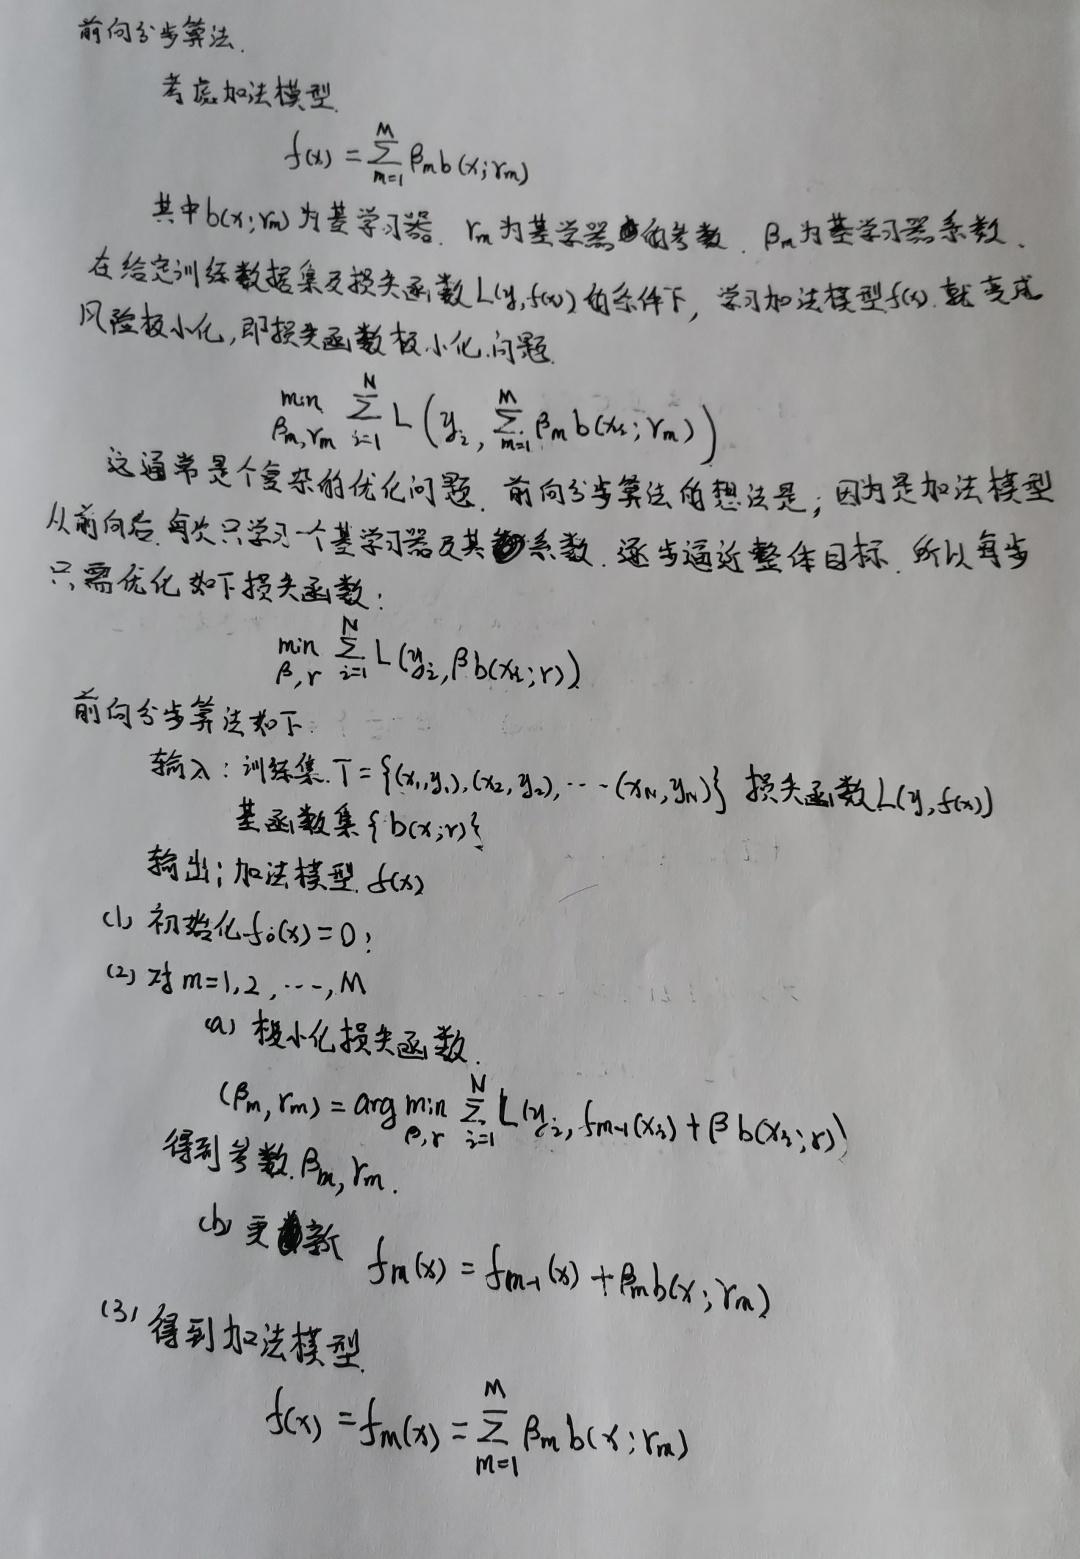 前向分步算法.
考虑加法模型.
f(x) = ∑_{m=1}^{M} β_m b(x; γ_m)
其中 b(x; γ_m) 为基学习器. γ_m 为基学器的参数. β_m 为基学习器系数.
在给定训练数据集及损失函数 L(y, f(x)) 的条件下, 学习加法模型 f(x) 就变成
风险极小化, 即损失函数极小化问题.
min_{β_m, γ_m} ∑_{i=1}^{N} L(y_i, ∑_{m=1}^{M} β_m b(x_i; γ_m))
这通常是个复杂的优化问题. 前向分步算法的想法是; 因为是加法模型
从前向后. 每次只学习一个基学习器及其系数. 逐步逼近整体目标. 所以每步
只需优化如下损失函数:
min_{β, γ} ∑_{i=1}^{N} L(y_i, β b(x_i; γ))
前向分步算法如下.
输入: 训练集 T = {(x_1, y_1), (x_2, y_2), ··· (x_N, y_N)} 损失函数 L(y, f(x))
基函数集 {b(x; γ)}
输出; 加法模型. f(x)
(1) 初始化 f_0(x) = 0;
(2) 对 m=1, 2, ···, M
(a) 极小化损失函数.
(β_m, γ_m) = arg min_{β, γ} ∑_{i=1}^{N} L(y_i, f_{m-1}(x_i) + β b(x_i; γ))
得到参数 β_m, γ_m.
(b) 更新
f_m(x) = f_{m-1}(x) + β_m b(x; γ_m)
(3) 得到加法模型.
f(x) = f_m(x) = ∑_{m=1}^{M} β_m b(x; γ_m)